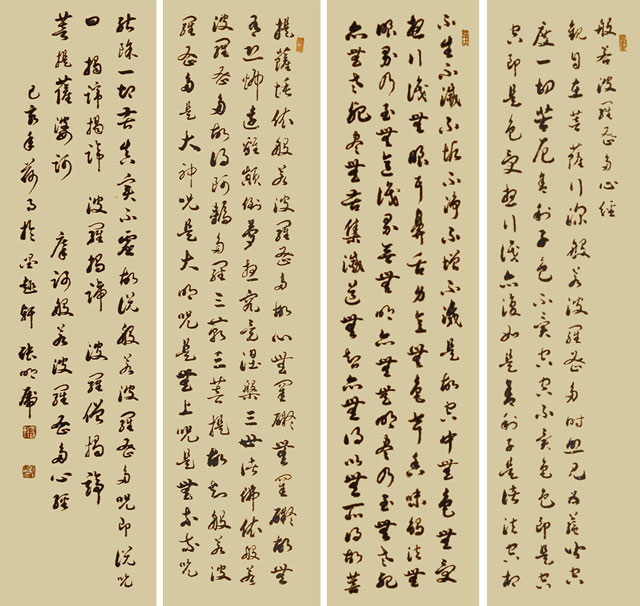 般若波羅蜜多心經
觀自在菩薩行深般若波羅蜜多時照見五蘊皆空
度一切苦厄舍利子色不異空空不異色色即是空
空即是色受想行識亦復如是舍利子是諸法空相
不生不滅不垢不淨不增不減是故空中無色無受
想行識無眼耳鼻舌身意無色聲香味觸法無
眼界乃至無意識界無無明亦無無明盡乃至無老死
亦無老死盡無苦集滅道無智亦無得以無所得故菩
提薩埵依般若波羅蜜多故心無罣礙無罣礙故無
有恐怖遠離顛倒夢想究竟涅槃三世諸佛依般若
波羅蜜多故得阿耨多羅三藐三菩提故知般若波
羅蜜多是大神呪是大明呪是無上呪是無等等呪
能除一切苦真實不虛故說般若波羅蜜多呪即說呪
曰 揭諦揭諦 波羅揭諦 波羅僧揭諦
菩提薩婆訶 摩訶般若波羅蜜多心經
己亥年荷月於墨趣軒 張明